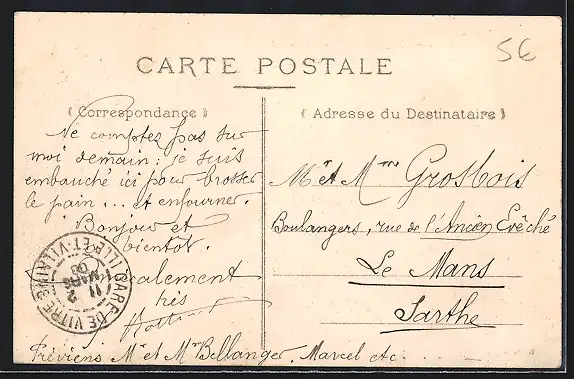 5€
CARTE POSTALE
(Correspondance)
(Adresse du Destinataire)
Ne comptez pas sur
moi demain : je suis
embauché ici pour brosser
le pain ... et enfourner.
Bonjour et
à bientôt.
très
Mr et Mme Grosbois
Boulangers, rue de l'Ancien Evêché
Le Mans
Sarthe
GARE-DE VITRÉ
ILLE-ET-VILAINE
MARS
Préviens Mr et Mme Bellanger, Marcel etc...